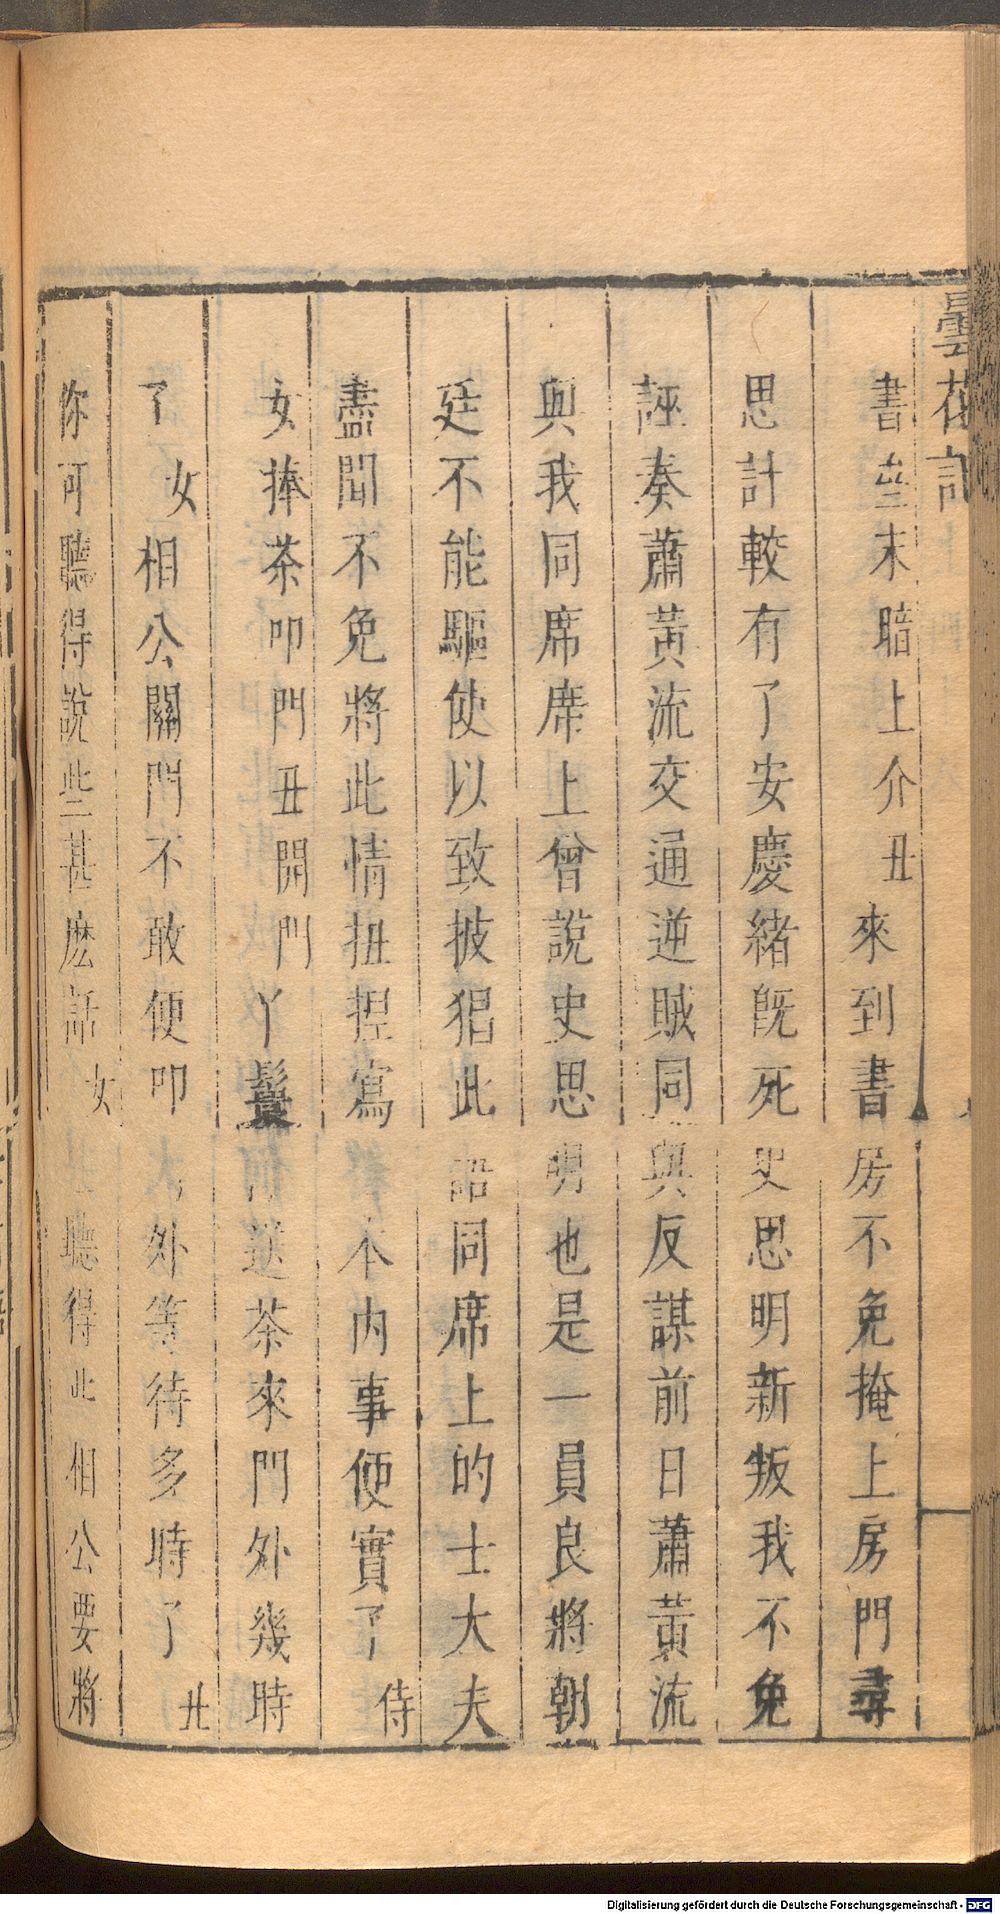 曇花記
書壘末暗上介丑來到書房不免掩上房門尋
思計較有了安慶緒旣死史思明新叛我不免
誣奏蕭黃流交通逆賊同與反謀前日蕭黃流
與我同席席上曾說史思明也是一員良將朝
廷不能驅使以致披猖此語同席上的士大夫
盡聞不免將此情扭揑寫本內事便實了侍
女捧茶叩門丑開門丫鬟送茶來門外幾時
了女相公關門不敢便叩外等待多時了丑
你可聽得說些甚麽話女聽得此相公要將
Digitalisierung gefördert durch die Deutsche Forschungsgemeinschaft - DFG